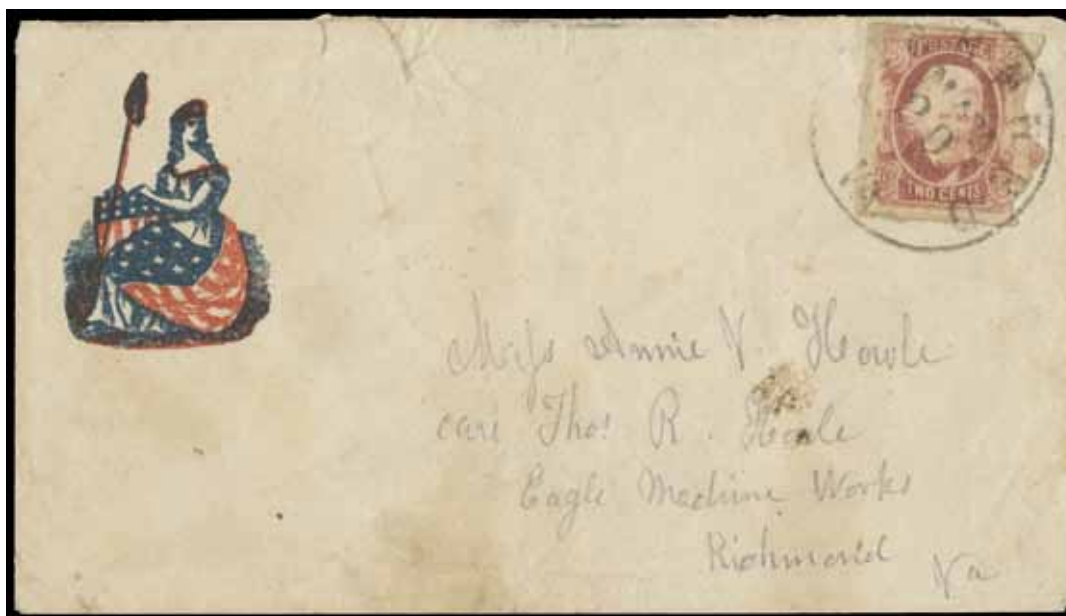 POSTAGE
TWO CENTS
Miss Annie V. Howle
care Thos. R. Howle
Eagle Machine Works
Richmond
Va